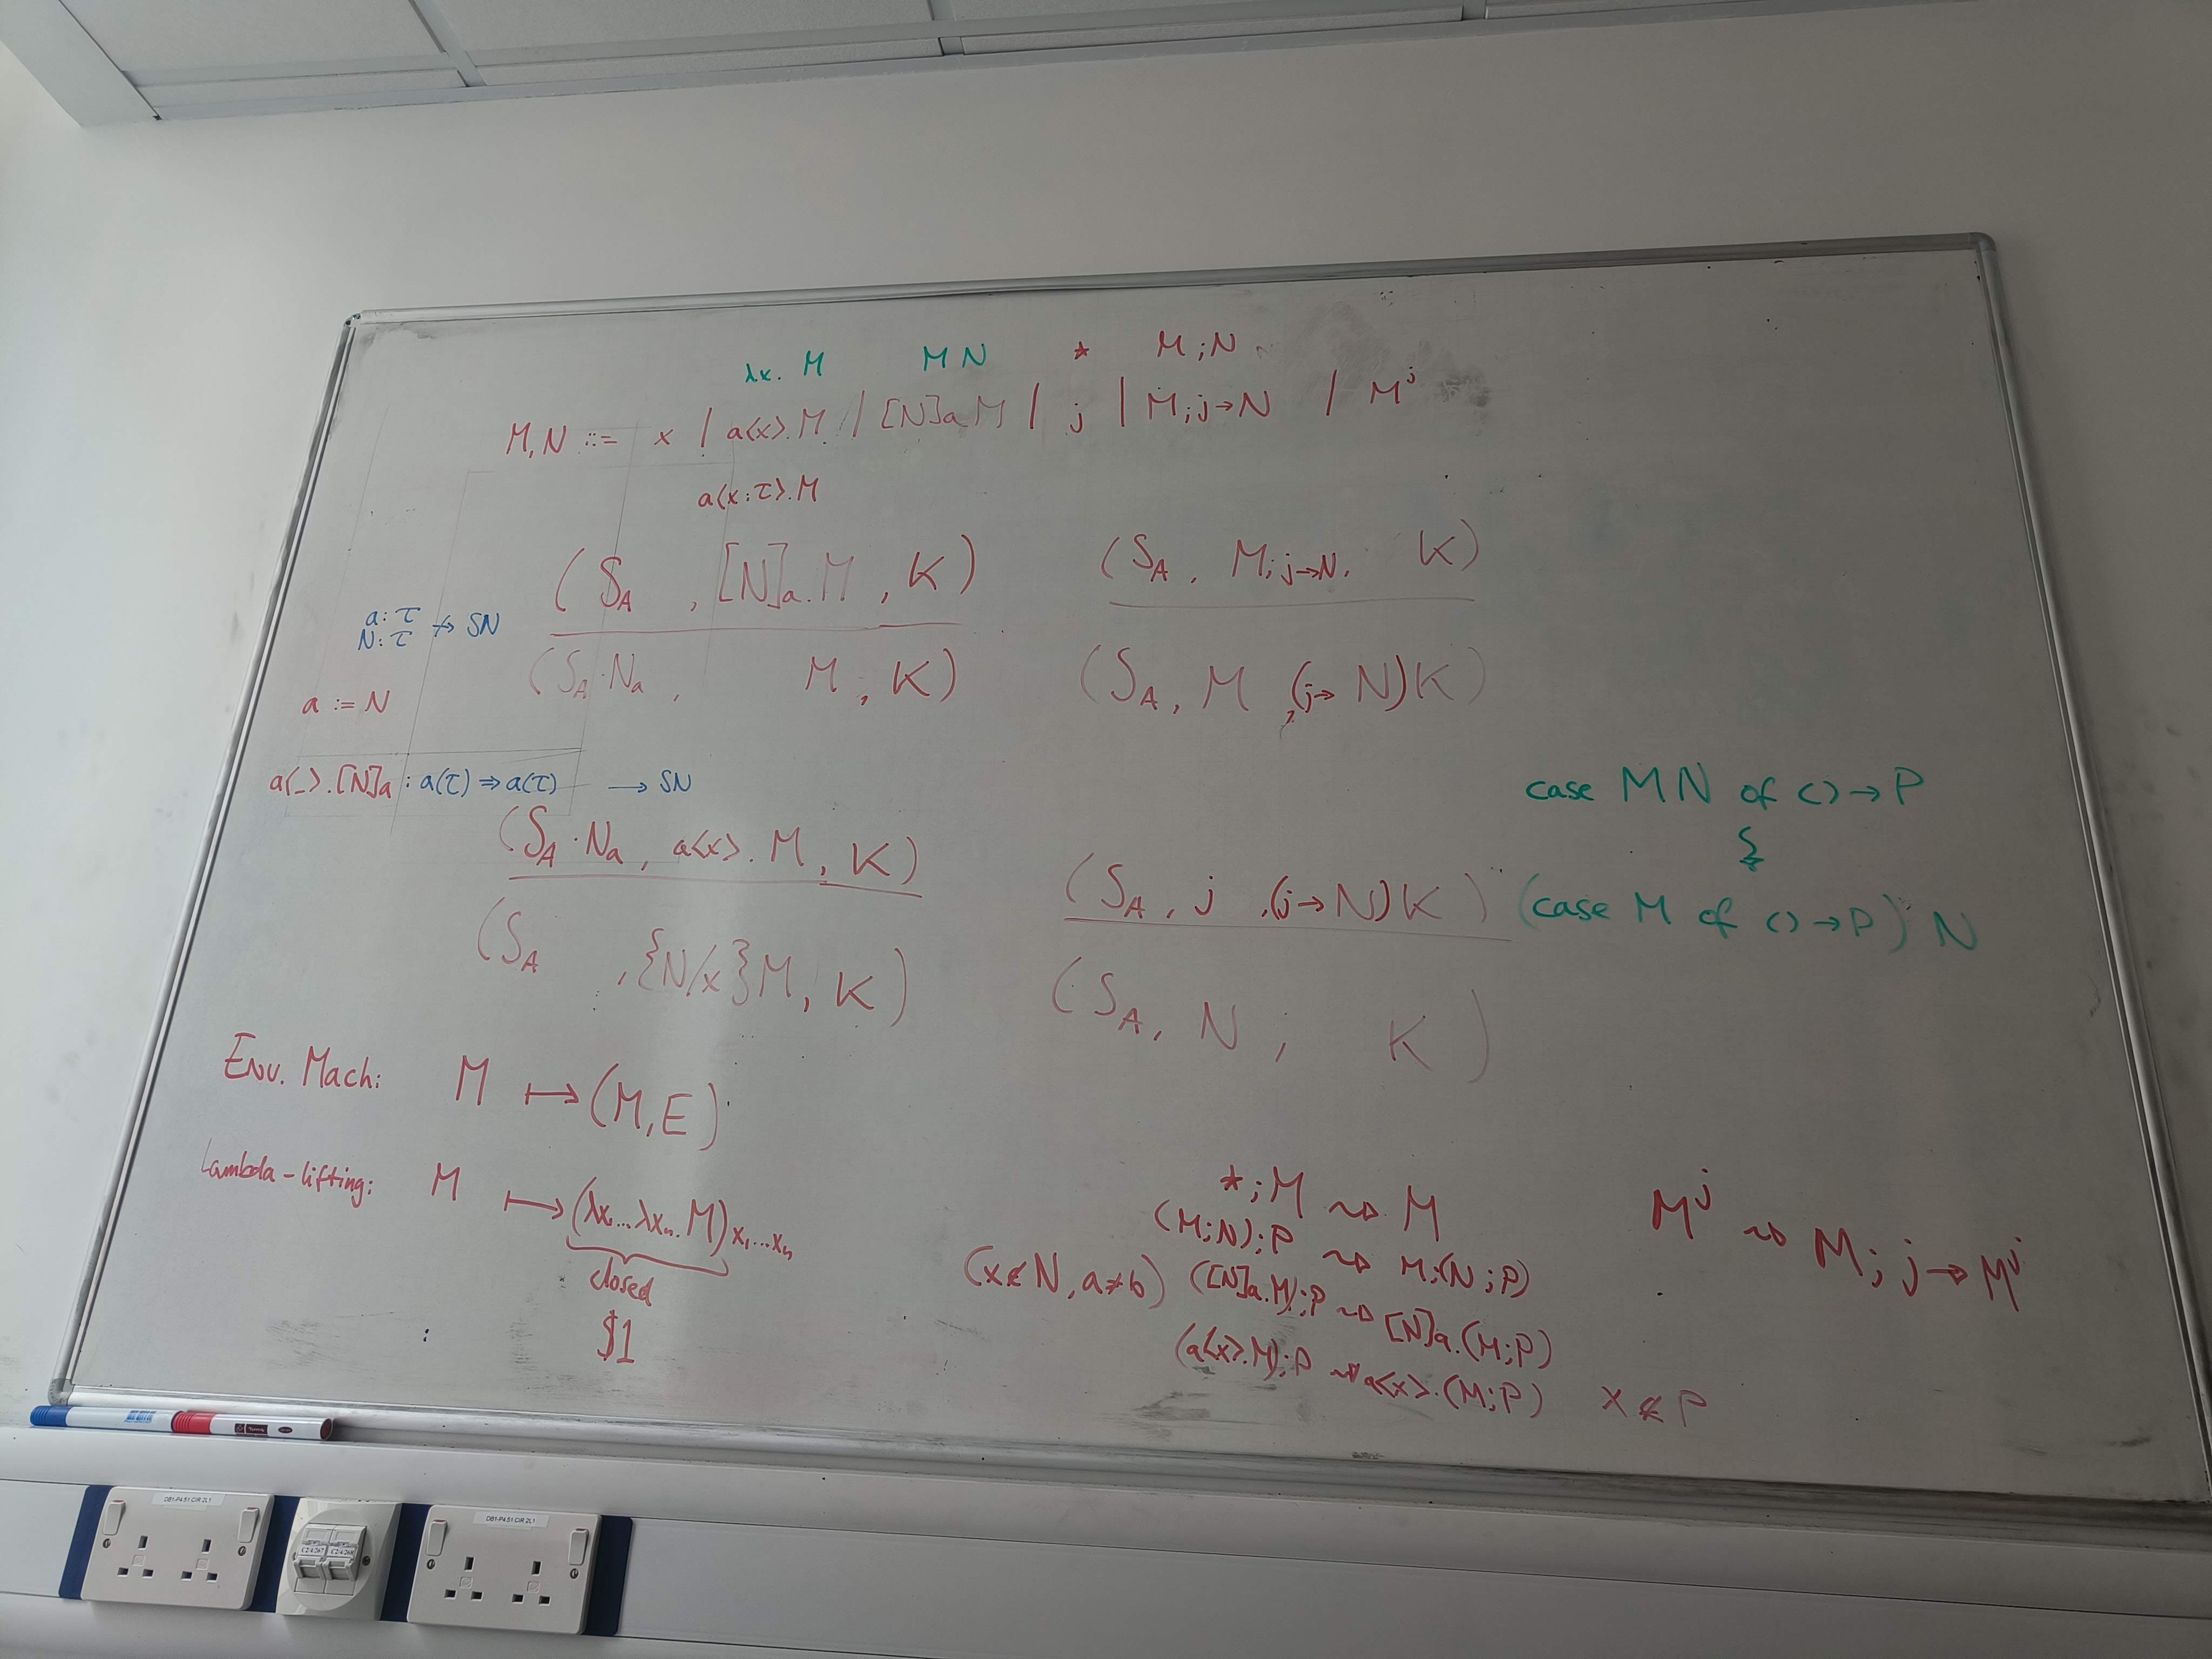 λx. M   M N   *   M ; N
M, N ::= x | a⟨x⟩. M | [N]a M | j | M ; j → N | M^j
a⟨x : τ⟩. M
(S_A , [N]a. M , K)
(S_A · N_a , M , K)
(S_A , M ; j → N , K)
(S_A , M , (j → N) K)
a : τ
N : τ ↛ SN
a := N
a⟨_⟩. [N]a : a(τ) ⇒ a(τ) → SN
(S_A · N_a , a⟨x⟩. M , K)
(S_A , {N/x} M , K)
(S_A , j , (j → N) K)
(S_A , N , K)
case M N of ⟨⟩ → P
⇝
(case M of ⟨⟩ → P) N
Env. Mach: M ↦ (M, E)
Lambda-lifting: M ↦ (λx₁...λxₙ. M) x₁...xₙ
closed
$1
* ; M ⇝ M
(M ; N) ; P ⇝ M ; (N ; P)
(x ∉ N, a ≠ b) ([N]a. M) ; P ⇝ [N]a. (M ; P)
(a⟨x⟩. M) ; P ⇝ a⟨x⟩. (M ; P)   x ∉ P
M^j ⇝ M ; j → M^j
DB1-P4.51:CIR 2L1
DB1-P4.51:CIR 2L1